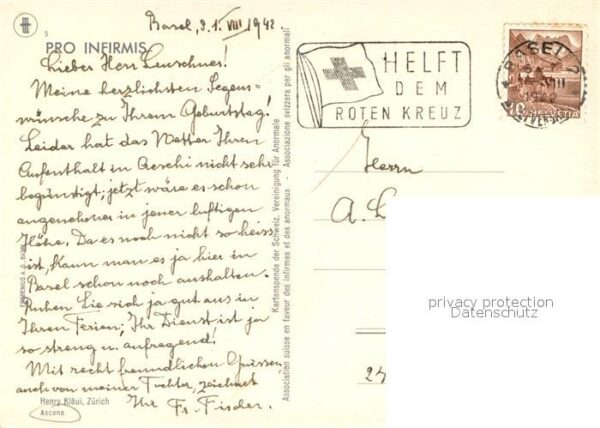 Basel, 31. VIII 1942.
5
PRO INFIRMIS
Lieber Herr Leuschner!
Meine herzlichsten Segens=
wünsche zu Ihrem Geburtstag!
Leider hat das Wetter Ihren
Aufenthalt in Aeschi nicht sehr
begünstigt; jetzt wäre es schon
angenehmer in jener luftigen
Höhe. Da es noch nicht so heiss
ist, kann man es ja hier in
Basel schon noch aushalten.
Ruhen Sie sich ja gut aus in
Ihren Ferien; Ihr Dienst ist ja
so streng u. aufregend!
Mit recht freundlichen Grüssen,
auch von meiner Tochter, zeichnet
Ihr Fr. Fisder.
Henry Kläui, Zürich
Ascona
Kartenspende der Schweiz. Vereinigung für Anormale - Associazione svizzera per gli anormali
Association suisse en faveur des infirmes et des anormaux -
HELFT
DEM
ROTEN KREUZ
BASEL 2
10 HELVETIA
Herrn
A. L
privacy protection
Datenschutz